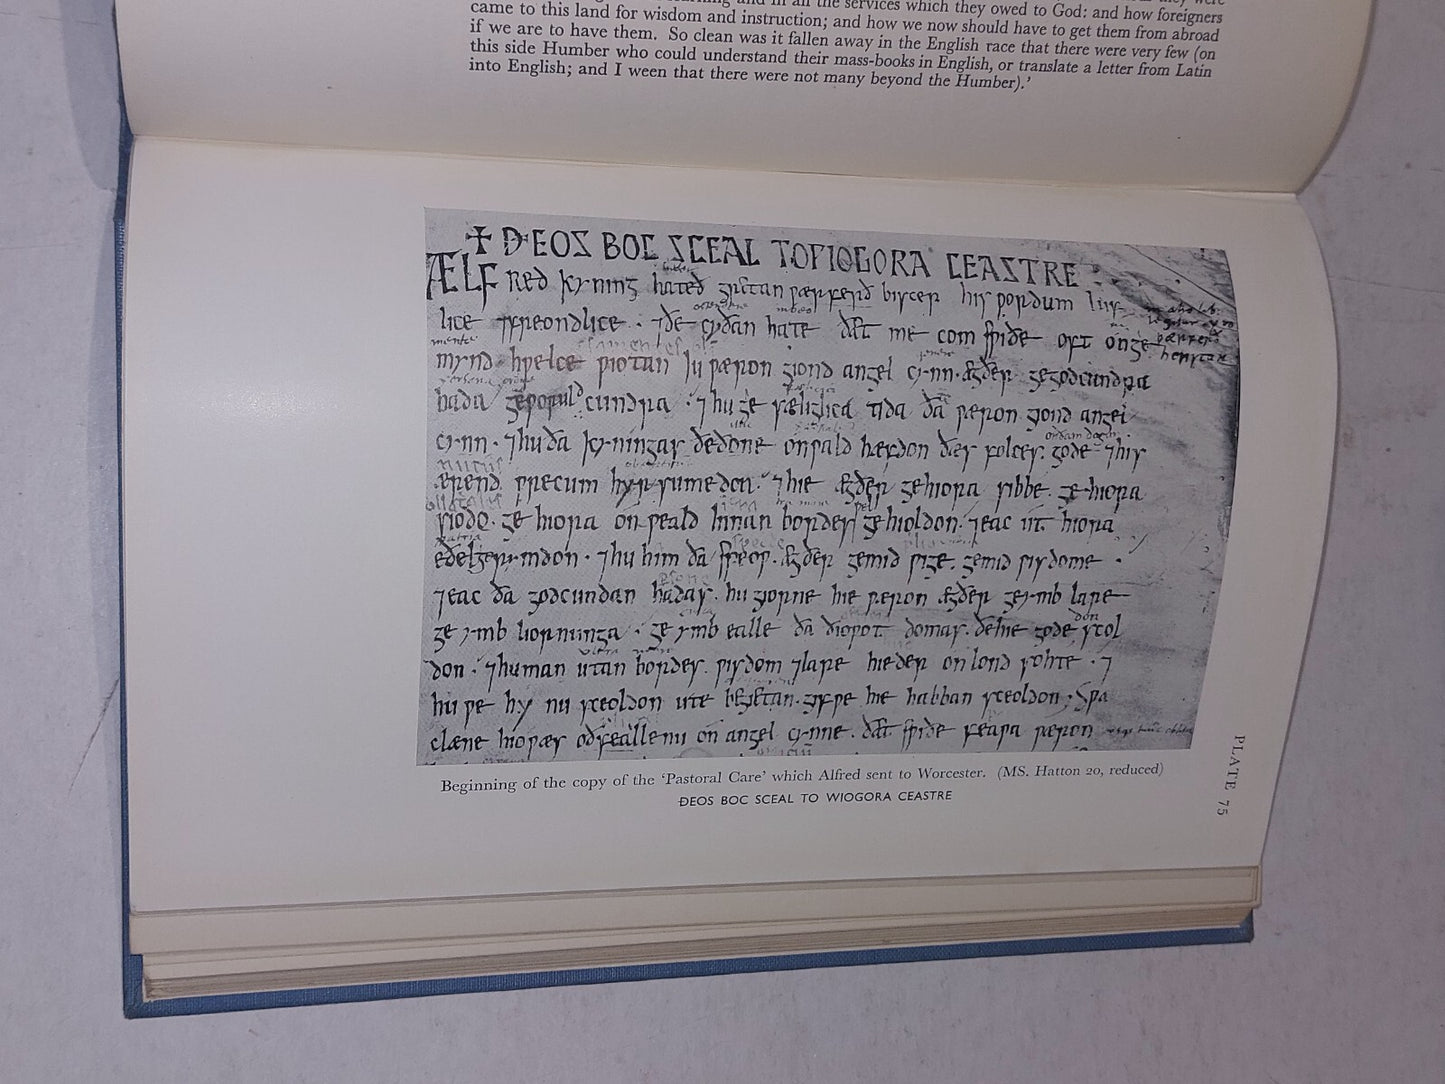 learning and in all the services which they owed to God: and how foreigners
came to this land for wisdom and instruction; and how we now should have to get them from abroad
if we are to have them. So clean was it fallen away in the English race that there were very few (on
this side Humber who could understand their mass-books in English, or translate a letter from Latin
into English; and I ween that there were not many beyond the Humber).'
✝ ÐEOS BOC SCEAL TO ǷIOGORA CEASTRE
ÆLFRED kyning hateð gretan ƿærferð biscep his ƿordum luf
lice ⁊ freondlice · ⁊ ðe cyðan hate ðæt me com sƿiðe oft on ge
mynd hƿelce ƿiotan iu ƿæron giond angel cynn · ægðer ge godcundra
hada ge ƿoruldcundra · ⁊ hu gesæliglica tida ða ƿæron giond angel
cynn · ⁊ hu ða kyningas ðe ðone onƿald hæfdon ðæs folces · gode ⁊ his
ærendƿrecum hyrsumedon · ⁊ hie ægðer ge hiora sibbe · ge hiora
siodo · ge hiora onƿeald innan bordes gehioldon · ⁊ eac ut hiora
eðel gerymdon · ⁊ hu him ða speoƿ · ægðer ge mid ƿige · ge mid ƿisdome ·
⁊ eac ða godcundan hadas · hu giorne hie ƿæron ægðer ge ymb lare
ge ymb liornunga · ge ymb ealle ða ðioƿot domas · ðe hie gode scol
don · ⁊ hu man utan bordes · ƿisdom ⁊ lare hieder on lond sohte · ⁊
hu ƿe hy nu sceoldon ute begietan · gif ƿe hie habban sceoldon · Sƿa
clæne hio ƿæs oðfeallenu on angel cynne · ðæt sƿiðe feaƿa ƿæron
Beginning of the copy of the 'Pastoral Care' which Alfred sent to Worcester. (MS. Hatton 20, reduced)
ÐEOS BOC SCEAL TO WIOGORA CEASTRE
PLATE 75